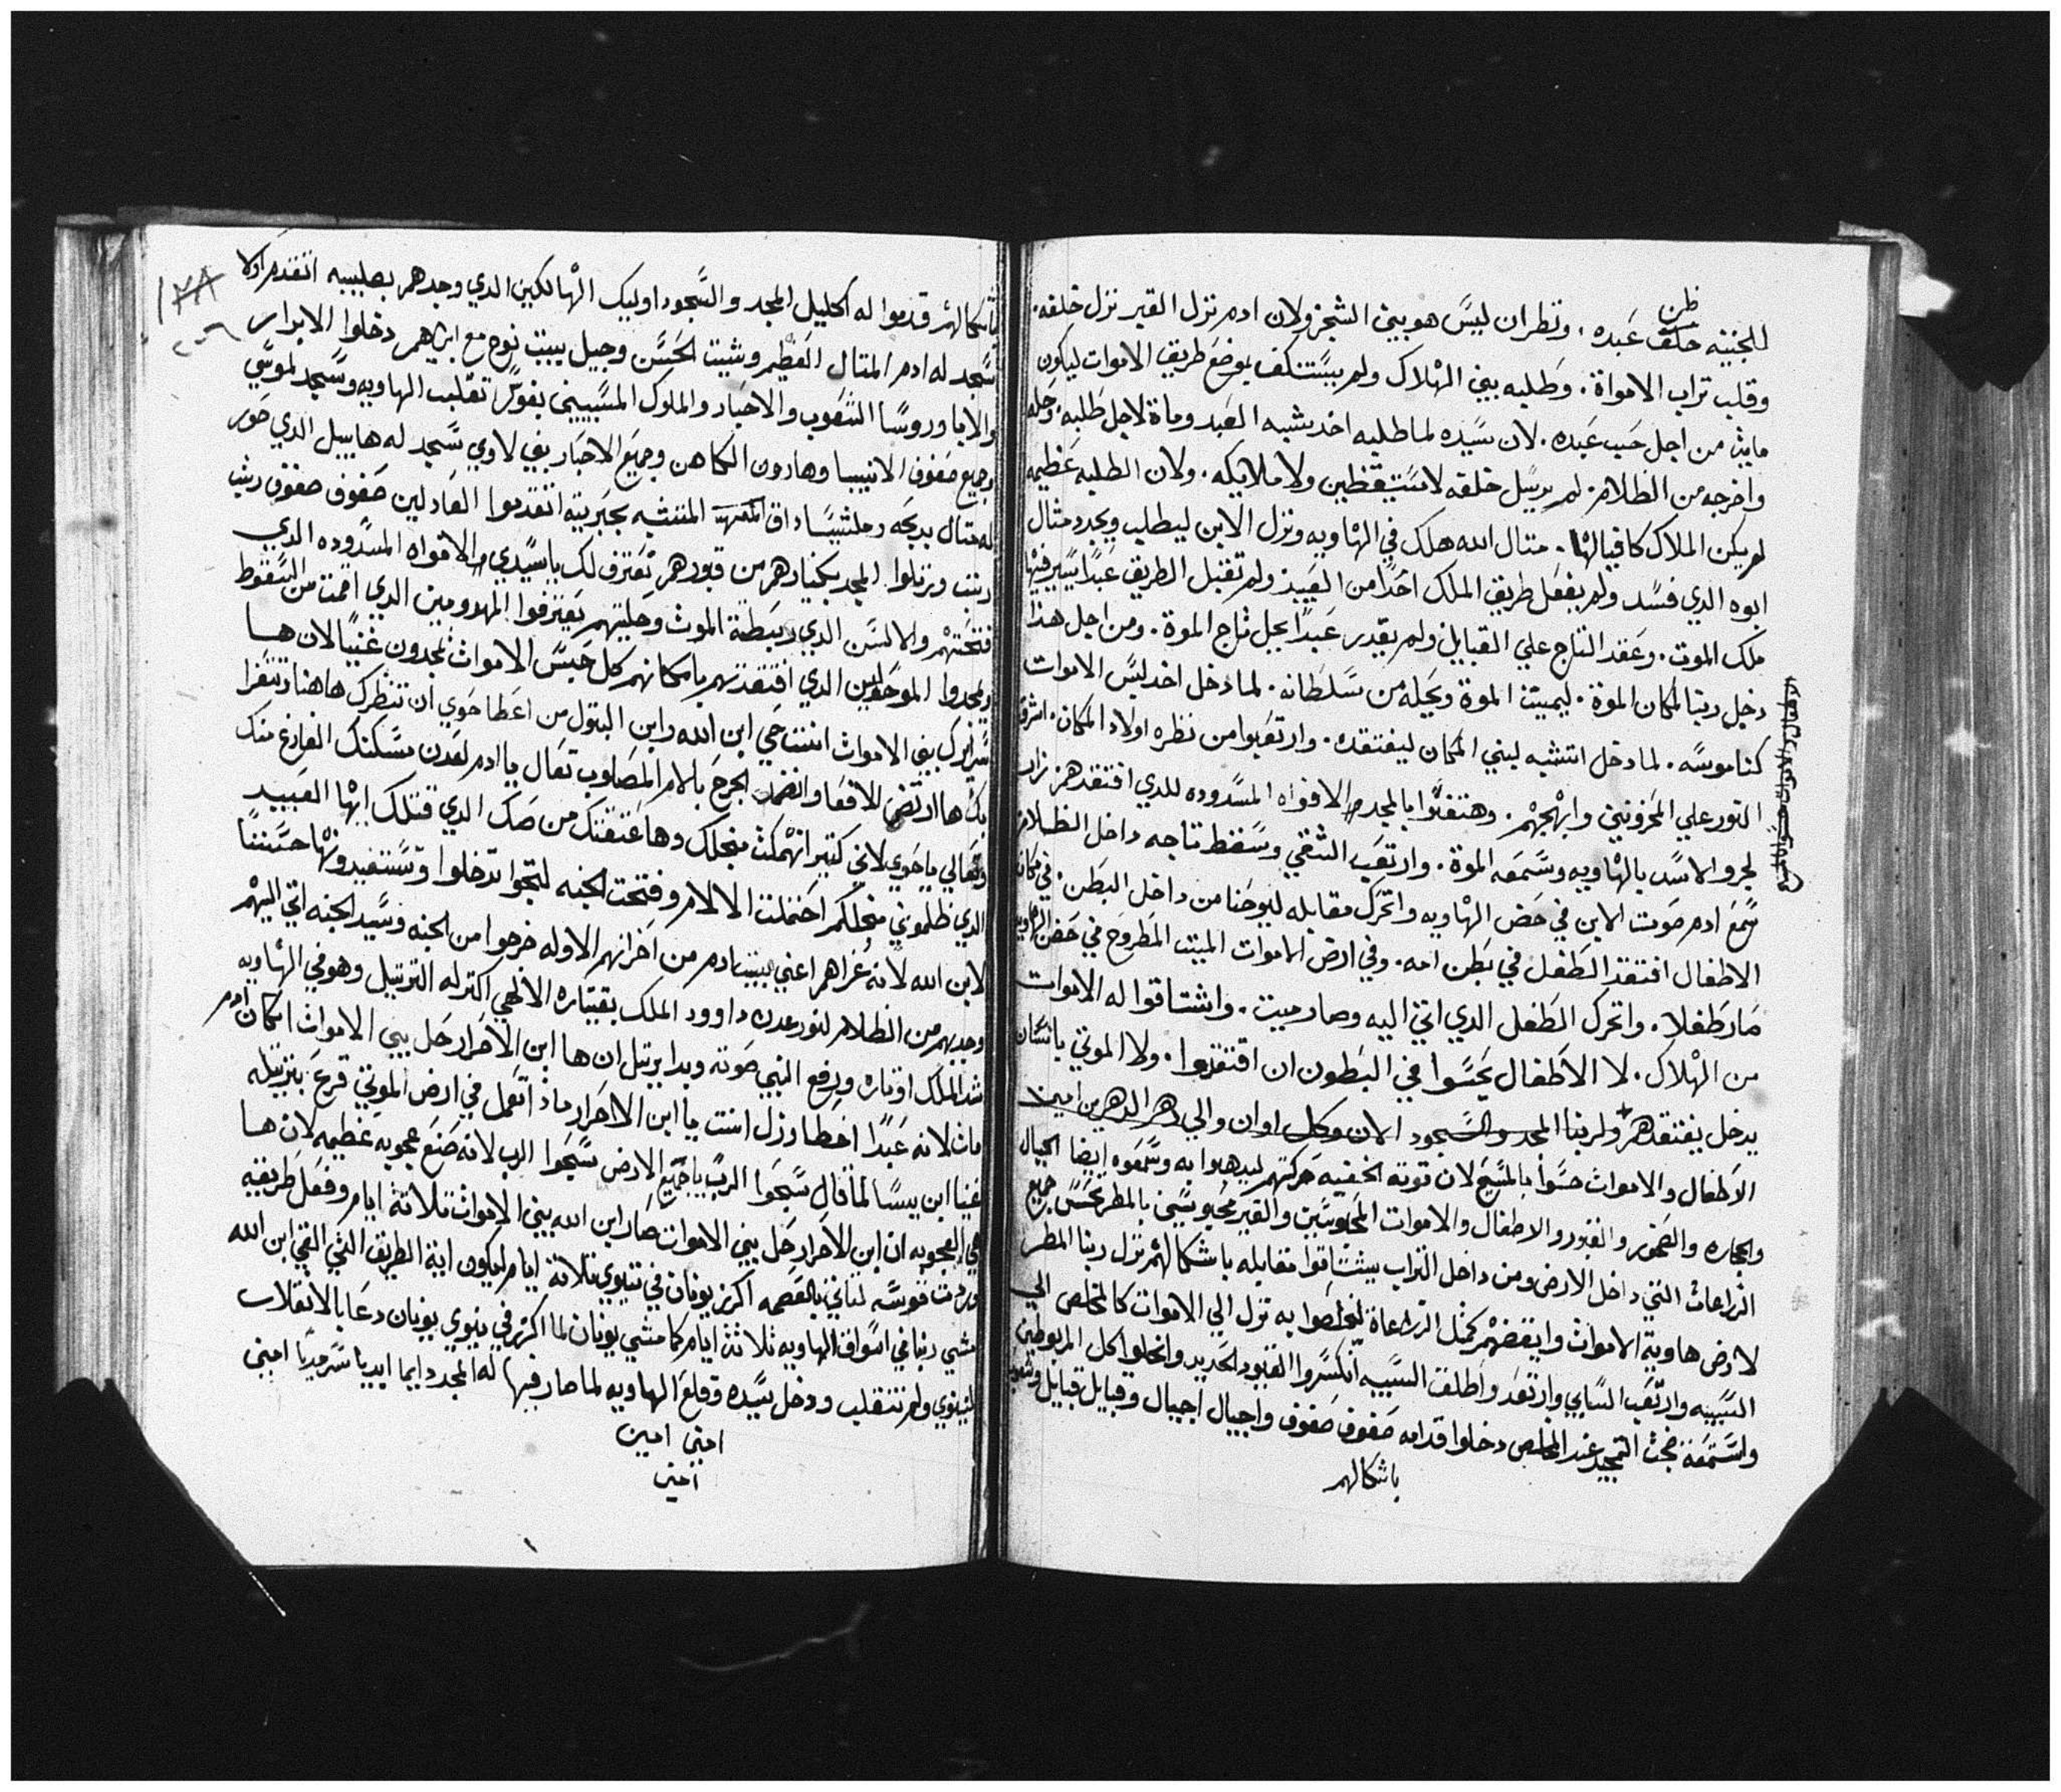 ظن
للجنينه خلف عبده. ونظر ان ليس هو بيني الشجر ولان ادم نزل القبر نزل خلفه.
وقلب تراب الامواة. وطلبه بيني الهلاك ولم يستنكف بوضع طريق الاموات ليكون
مايت من اجل حب عبده. لان سيده لما طلبه اخد شبه العبد وماة لاجل طلبه. وحله
واخرجه من الظلام. لم يرسل خلفه لا مستيقظين ولا ملايكه. ولان الطلبه عظيمه
لم يكن الملاك كافيا لها. متال الله هلك في الهاويه ونزل الابن ليطلب ويجدد مثال
ابوه الدي فسد ولم يفعل طريق الملك احدا من العبيد ولم تقبل الطريق عبدا يسير فيها
ملك الموت. وعقد التاج علي القبايل ولم يقدر عبدا يحل تاج الموة. ومن اجل هذا
دخل ربنا لمكان الموة. ليميت الموة ويحله من سلطانه. لما دخل اخد لبس الاموات
كناموسه. لما دخل اتشبه لبني المكان ليفتقده. وارتعبوا من نظره اولاد المكان. اشرق
النور علي المحزونين وابهجهم. وهتفوا بالمجد الافواه المسدوده للدي افتقدهم نزل
لجرو الاسد بالهاويه وسمعه الموة. وارتعب الشقي وسقط تاجه داخل الظلام
سمع ادم صوت الابن في حضن الهاويه واتحرك مقابله ليوحنا من داخل البطن. في مكان
الاطفال افتقد الطفل في بطن امه. وفي ارض الاموات الميت المطروح في حضن الهاويه
صار طفلا. واتحرك الطفل الدي اتي اليه وصار ميت. واشتاقوا له الاموات
من الهلاك. لا الاطفال يحسوا في البطون ان افتقدوا. ولا الموتي بانسان
يدخل يفتقدهم ولربنا المجد والسجود الان وكل اوان والي دهر الداهرين امين
الاطفال والاموات حسوا بالمسيح لان قوته الخفيه حركتهم ليدهلوا به وسمعوه ايضا الجبال
والحجاره والصخور والقبور والاطفال والاموات المحبوسين والقبر محبوسين بالمطر يحس جميع
الزراعات التي داخل الارض ومن داخل التراب يشتاقوا مقابله باشكالهم نزل ربنا المطر
لارض هاوية الاموات وايقضهم كمثل الزراعاة ليفرحوا به نزل الي الاموات كالمخلص الي
السبيه وارتعب السابي وارتعد واطلقت السبيه انكسروا القيود الحديد وانحلوا كل المربوطين
واستمعة ضجت التمجيد عند المخلص دخلوا قدامه صفوف صفوف واجيال اجيال وقبايل قبايل وشعوب
باشكالهم
الاطفال والاموات حسوا بالمسيح
١٢٨
٢٠٦
باشكالهم قدموا له اكليل المجد والسجود اوليك الهالكين الدي وجدهم بصليبه اتقدم اولا
سجد له ادم المتال العظيم وشيت الحسن وجيل بيت نوح مع ابراهيم دخلوا الابرار
والابا وروسا الشعوب والاحبار والملوك المسبيين تقليب الهاويه وسجد لموسي
وجميع صفوف الانبيا وهارون الكاهن وجميع الاحبار بني لاوي سجد له هابيل الدي صور
له متال بدبحه وملشيساداق المتشبه بحبريته اتقدموا العادلين صفوف صفوف رتب
رتب ورتلوا المجد بكنيارهم من قبورهم نعترف لك ياسيدي الافواه المسدوده الدي
فتحتهم والالسن الدي ربطة الموت وحليتهم يعترفوا المهدومين الدي اقمت من السقوط
ويمجدوا الموحولين الدي افتقدتهم بامكانهم كل حبس الاموات يمجدون عنيا لان ها
سراير ك بيني الاموات انت حي ابن الله وابن البتول من اعطا حوي ان تنظرك هاهنا وتتعزا
بك ها اترضض الافعا وانضمد الجرح بالام المصلوب تعال يا ادم لعدن مسكنك الفارغ منك
وتعالي ياحوي لاني كتير اهتميت منجلك وها عتقتك من صك الدي قتلك ايها العبيد
الدي ظلموني منجلكم احتملت الالام وفتحت الجنه لتجوا تدخلوا وتستفيدونها حسنا
لابن الله لانه عزاهم اعني بيت ادم من احزانهم الاوله خرجوا من الجنه وسيد الجنه اتي اليهم
وجدبهم من الظلام لنور عدن داوود الملك بقيتاره الالهي اكتر له الترتيل وهو في الهاويه
شد الملك اوتاره ورفع النبي صوته وبدا يرتل ان ها ابن الاحرار حل بيني الاموات امكان ادم
مات لانه عبدا اخطا وزل انت يا ابن الاحرار مادا تعمل في ارض الموتي قرع بترتيله
غنا ابن يسا لما قال سبحوا الرب ياجميع الارض سبحوا الرب لانه صنع عجوبه عظيمه لان ها
هي العجوبه ان ابن الاحرار حل بيني الاموات صار ابن الله بيني الاموات تلاتة ايام وفعل طريقيه
اكرز يونان في نينوي تلاتة ايام ليكون اية الطريق التي القي ابن الله
مشي ربنا في اسواق الهاويه تلاتة ايام كما مشي يونان لما اكرز في نينوي يونان دعا بالانقلاب
لنينوي ولم تنقلب ودخل سيده وقلع الهاويه لما صار فيها له المجد دايما ابديا سرمديا امين
امين امين
امين